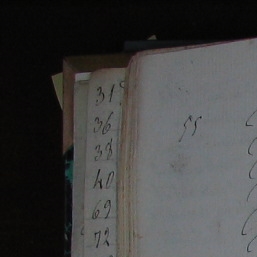 31
36
38
40
69
72
55